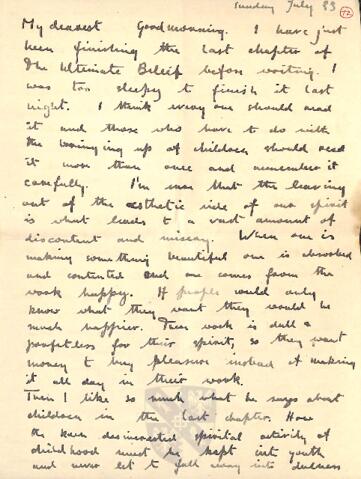 Sunday July 23
72
My dearest Goodmorning. I have just
been finishing the last chapter of
The Ultimate Beleif before writing. I
was too sleepy to finish it last
night. I think every one should read
it and those who have to do with
the bringing up of children should read
it more than once and remember it
carefully. I'm sure that the leaving
out of the aesthetic side of our spirit
is what leads to a vast amount of
discontent and misery. When one is
making something beautiful one is absorbed
and contented and one comes from the
work happy. If people would only
know what they want they would be
much happier. Their work is dull &
profitless for their spirit, so they want
money to buy pleasure instead of making
it all day in their work.
Then I like so much what he says about
children in the last chapter. How
the keen desinterested spirital activity of
childhood must be kept into youth
and never let to fall away into dulness